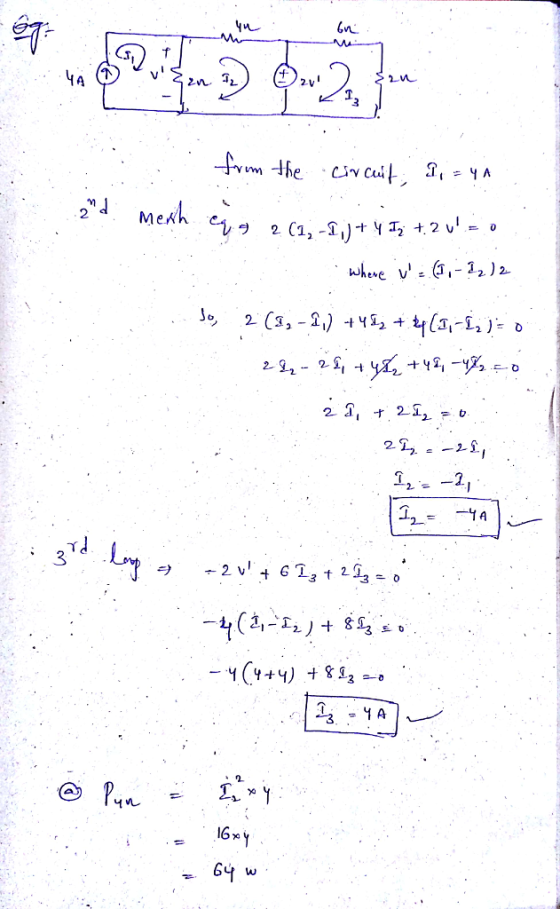 Eg:-
4Ω 6Ω
4A I₁ + v' - 2Ω I₂ + 2v' I₃ 2Ω
from the circuit, I₁ = 4A
2nd Mesh eq ⇒ 2(I₂-I₁)+4I₂+2v' = 0
where v' = (I₁-I₂)2
So, 2(I₂-I₁)+4I₂+4(I₁-I₂)=0
2I₂-2I₁+4I₂+4I₁-4I₂=0
2I₁+2I₂=0
2I₂=-2I₁
I₂=-I₁
I₂= -4A ✓
3rd loop ⇒ -2v'+6I₃+2I₃=0
-4(I₁-I₂)+8I₃=0
-4(4+4)+8I₃=0
I₃=4A ✓
ⓐ P4Ω = I₂²×4
= 16×4
= 64 w